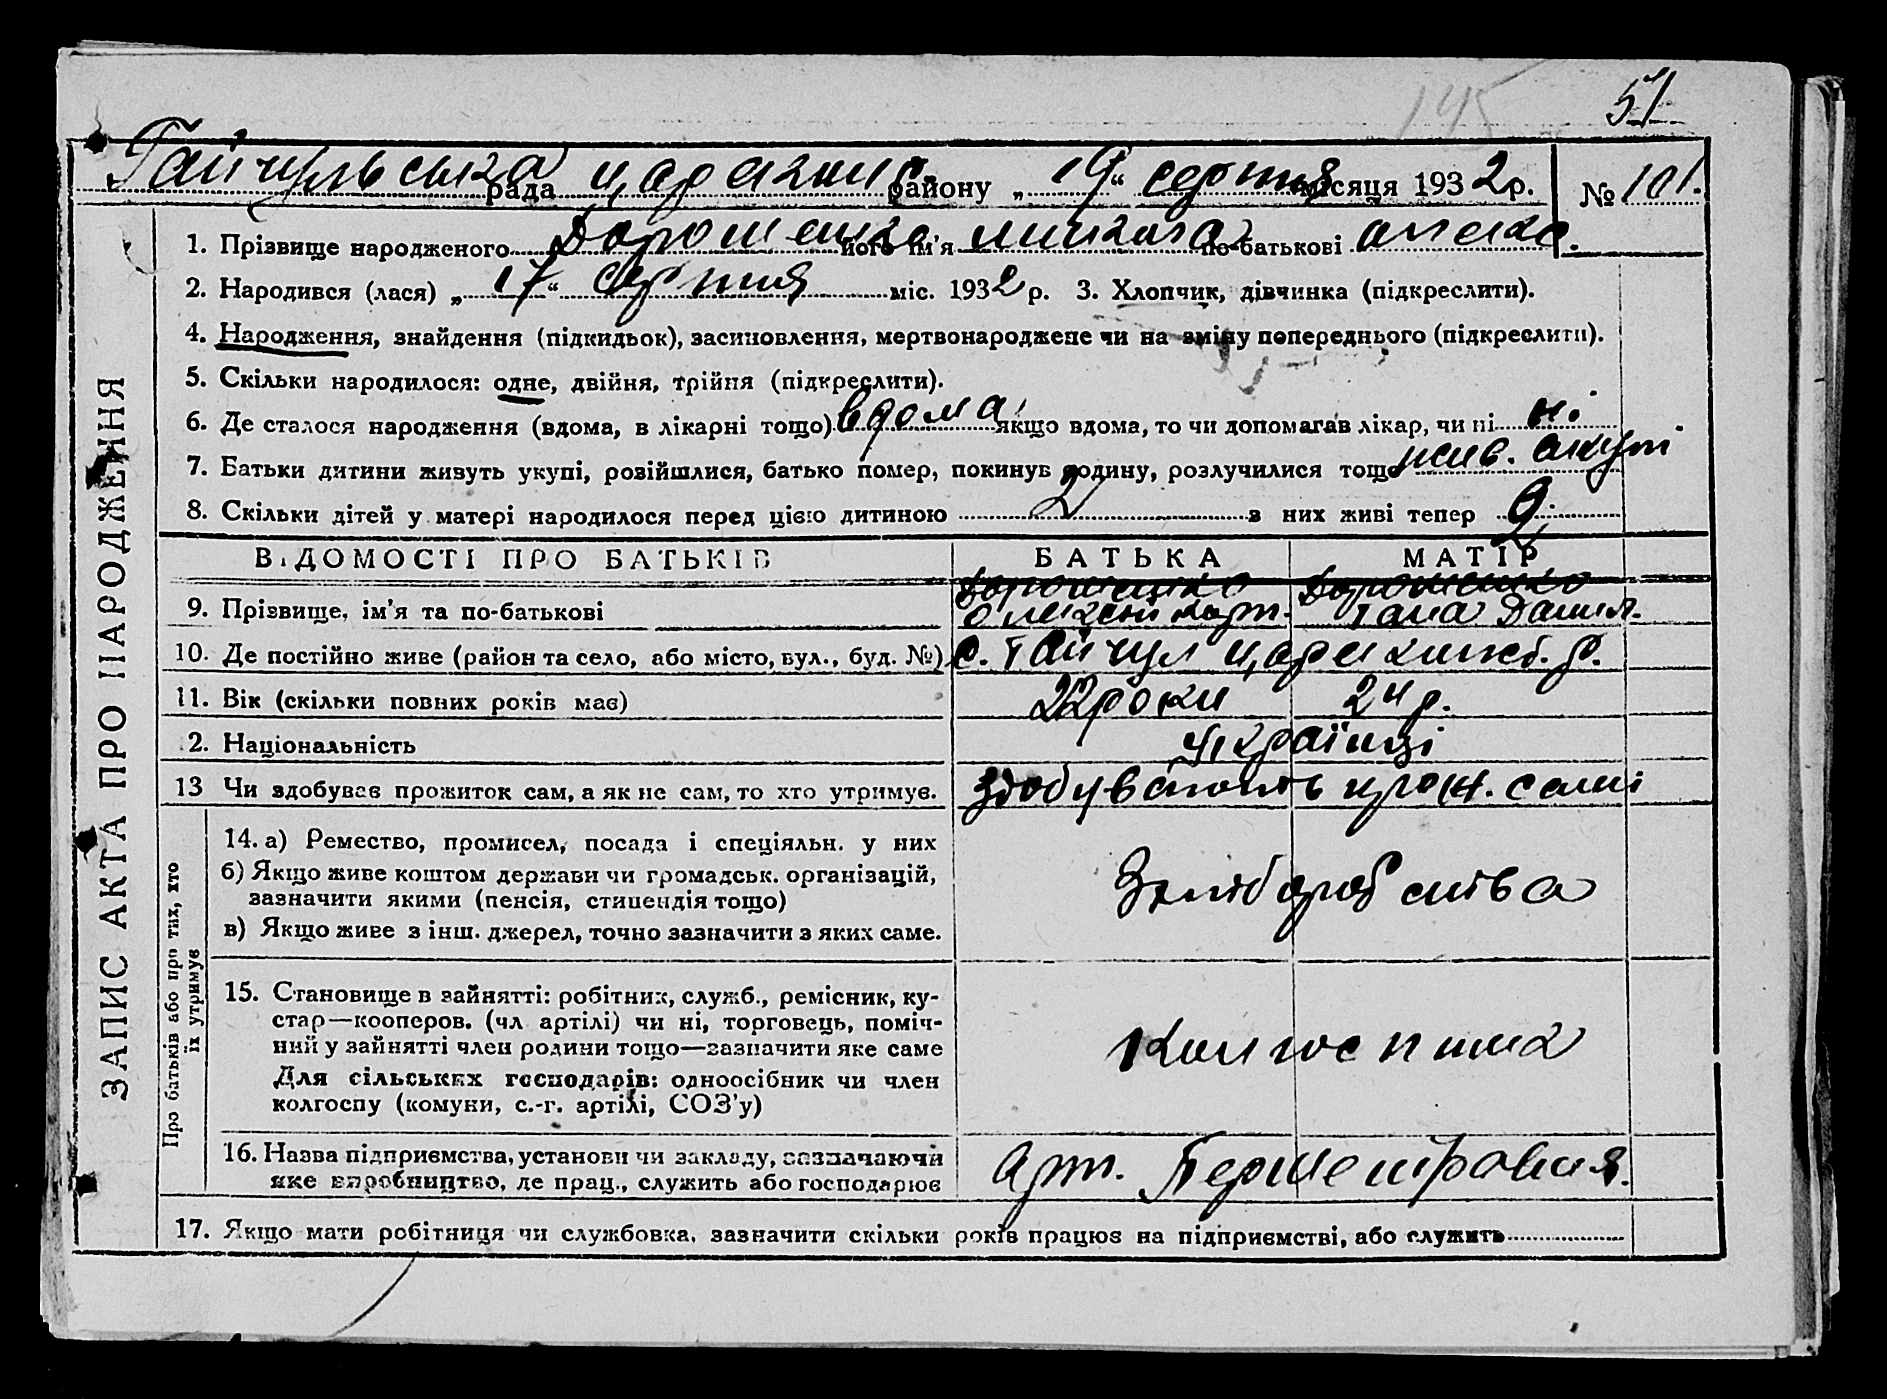 145
51
Гайчульська рада царекон. району „ 19 “ серпня місяця 1932 р. № 101.
1. Прізвище народженого Дорошенко його ім’я микола по-батькові олекс.
2. Народився (лася) „ 17 “ серпня міс. 1932 р. 3. Хлопчик, дівчинка (підкреслити).
4. Народження, знайдення (підкидьок), засиновлення, мертвонароджене чи на зміну попереднього (підкреслити).
5. Скільки народилося: одне, двійня, трійня (підкреслити).
6. Де сталося народження (вдома, в лікарні тощо) вдома, якщо вдома, то чи допомагав лікар, чи ні ні
7. Батьки дитини живуть укупі, розійшлися, батько помер, покинув родину, розлучилися тощо жив. вкупі
8. Скільки дітей у матері народилося перед цією дитиною 2 з них живі тепер
ВІДОМОСТІ ПРО БАТЬКІВ БАТЬКА МАТІР
Дорошенко Дорошенко
9. Прізвище, ім’я та по-батькові Олексій Тана Данил.
10. Де постійно живе (район та село, або місто, вул., буд. №) с. Гайчул р.
11. Вік (скільки повних років має) 22 роки 24 р.
2. Національність українці
13 Чи здобував прожиток сам, а як не сам, то хто утримує. здобувають прож. самі
14. а) Ремество, промисел, посада і спеціяльн. у них
б) Якщо живе коштом держави чи громадськ. організацій,
зазначити якими (пенсія, стипендія тощо)
в) Якщо живе з інш. джерел, точно зазначити з яких саме.
Хліборобства
15. Становище в зайнятті: робітник, служб., ремісник, ку-
стар—кооперов. (чл артілі) чи ні, торговець, поміч-
ний у зайнятті член родини тощо—зазначити яке саме
Для сільських господарів: одноосібник чи член
колгоспу (комуни, с.-г. артілі, СОЗ’у)
Колгоспника
16. Назва підприємства, установи чи закладу, зазначаючи
яке виробництво, де прац., служить або господарює
Арт. Першетравня.
17. Якщо мати робітниця чи службовка, зазначити скільки років працює на підприємстві, або служить
ЗАПИС АКТА ПРО НАРОДЖЕННЯ
Про батьків або про тих, хто
їх утримує